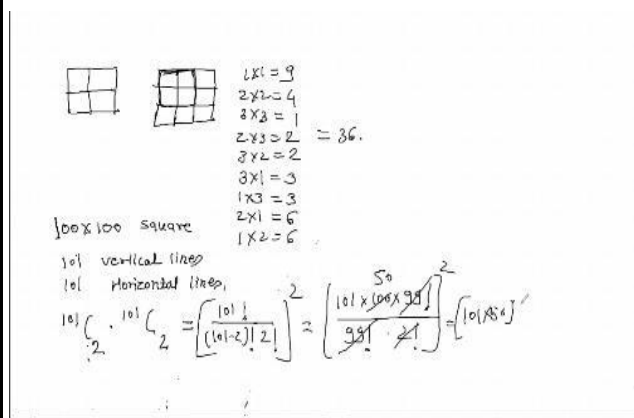 1x1 = 9
2x2 = 4
3x3 = 1
2x3 = 2 = 36.
3x2 = 2
3x1 = 3
1x3 = 3
2x1 = 6
1x2 = 6
100x100 square
101 vertical lines
101 Horizontal lines,
¹⁰¹C₂ . ¹⁰¹C₂ = [101! / (101-2)! 2!]² = [101 x 100 x 99! / 99! 2!]² 50 = [101x50]²